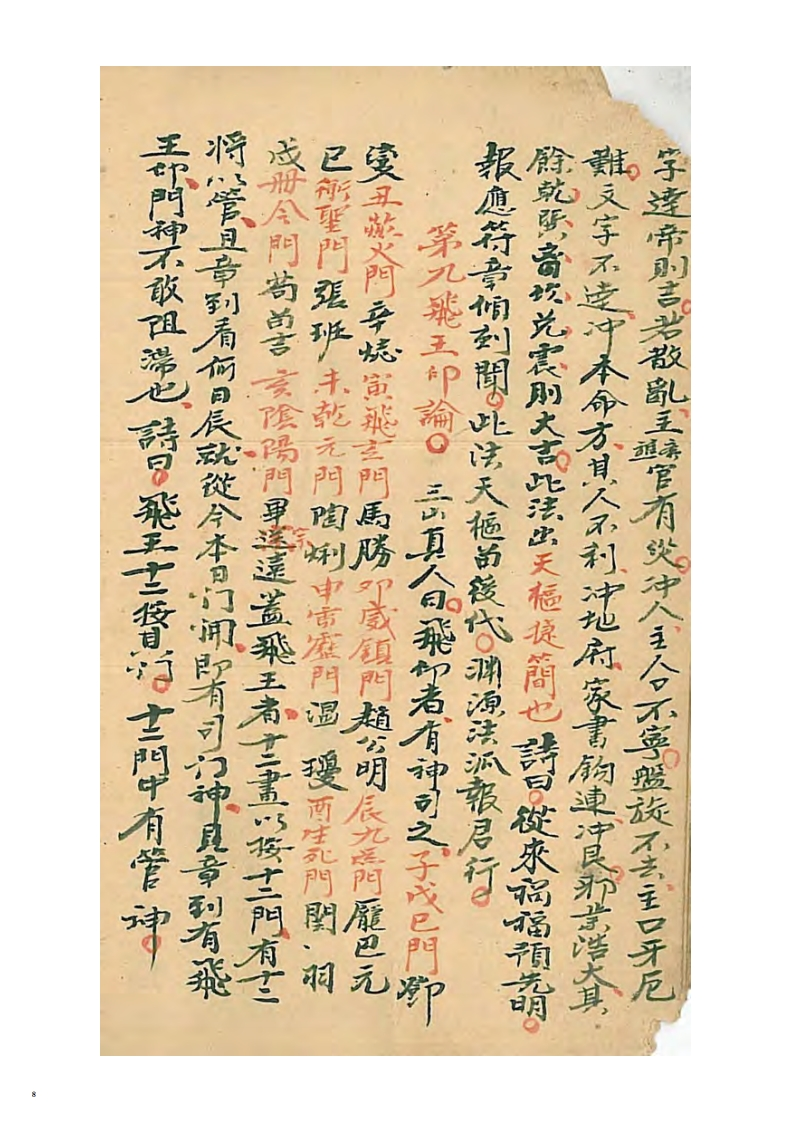 字達帝則吉。若散亂、主齋醮官有災。冲人、主人口不寧。盤旋不去、主口牙厄
難。文字不達、冲本命方、其人不利、冲地府、家書鈎連、冲艮。邪業浩大、其
餘乾巽离坎兑震則大吉。此法出天樞㨂簡也 詩曰。從來禍福預先明。
報應符章傾刻聞。此法天樞留後代。淵源法派報君行。
第九飛王印論。 三山真人曰。飛印者、有神司之、子戊巳門 鄧
燮 丑歘火門 辛㷸 寅飛玄門 馬勝 卯威鎮門 趙公明 辰九㷸門 龐巴元
巳衛聖門 張班 未乾元門 陶烱 申雷霆門 温瓊 酉生死門 関、羽
戌册令門 苟留吉 亥陰陽門 畢宗遠 蓋飛王者、十二畫以按十二門、有十二
將以管、且章到看何日辰、就從今本日門開、即有司門神、且章到有飛
王印、門神不敢阻滯也、 詩曰。飛王十二按門行。十二門中有管神。
8